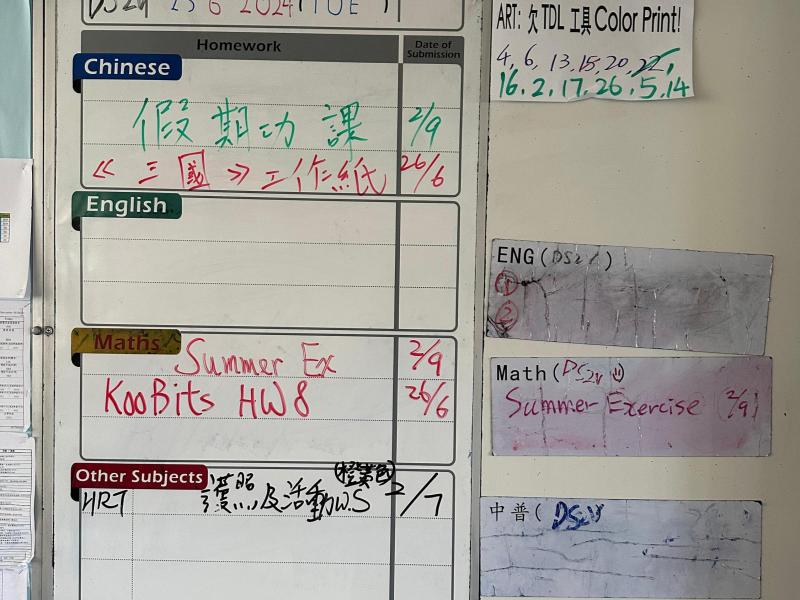 25 6 2024 (TUE)
Homework
Date of Submission
Chinese
假期功課 2/9
《三國》工作紙 26/6
English
Maths
Summer Ex 2/9
KooBits HW8 26/6
Other Subjects
(橙黃色)
HRT 護照及活動W.S 2/7
ART: 欠 TDL 工具 Color Print!
4, 6, 13, 15, 20, 22,
16, 2, 17, 26, 5, 14
ENG (DS2Y)
①
②
Math (DS2Y
Summer Exercise (2/9)
中普 (DS2Y